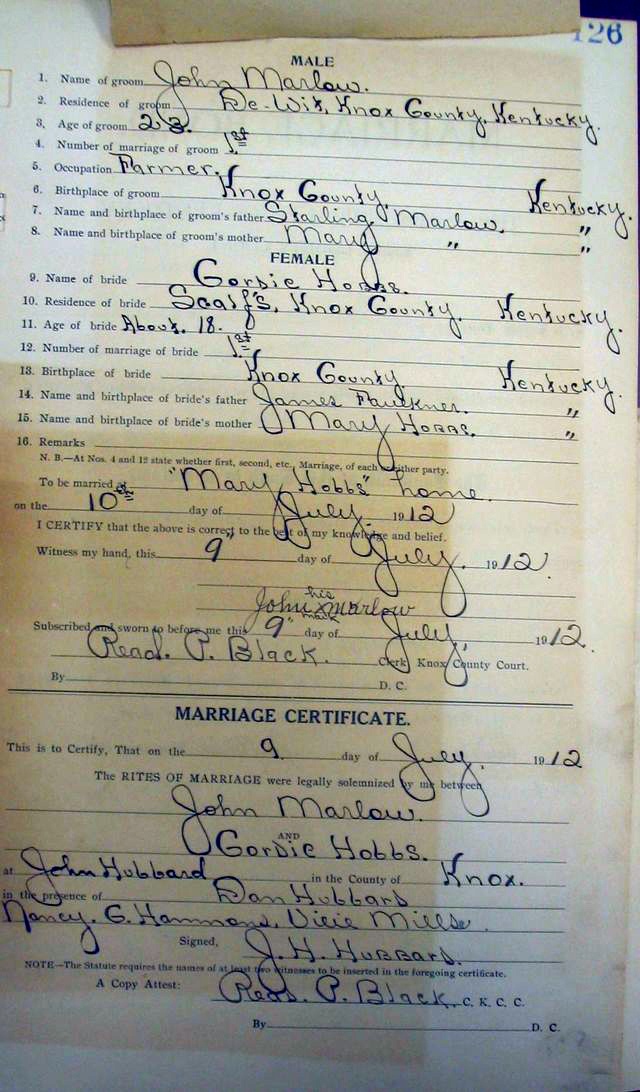 126
MALE
1. Name of groom John Marlow.
2. Residence of groom De-Wit, Knox County, Kentucky.
3. Age of groom 23.
4. Number of marriage of groom 1st
5. Occupation Farmer.
6. Birthplace of groom Knox County. Kentucky.
7. Name and birthplace of groom's father Starling Marlow. "
8. Name and birthplace of groom's mother Mary " "
FEMALE
9. Name of bride Gordie Hobbs.
10. Residence of bride Scalf's, Knox County. Kentucky.
11. Age of bride About. 18.
12. Number of marriage of bride 1st
13. Birthplace of bride Knox County. Kentucky.
14. Name and birthplace of bride's father James Faulkner. "
15. Name and birthplace of bride's mother Mary Hobbs. "
16. Remarks
N. B.—At Nos. 4 and 12 state whether first, second, etc., Marriage, of each either party.
To be married at "Mary Hobbs" home.
on the 10th day of July. 1912
I CERTIFY that the above is correct to the best of my knowledge and belief.
Witness my hand, this 9" day of July. 1912.
his
John x Marlow
mark
Subscribed and sworn to before me this 9" day of July, 1912.
Read. P. Black. Clerk Knox County Court.
By D. C.
MARRIAGE CERTIFICATE.
This is to Certify, That on the 9 day of July. 1912
The RITES OF MARRIAGE were legally solemnized by me between
John Marlow.
AND
Gordie Hobbs.
at John Hubbard in the County of Knox.
in the presence of Dan Hubbard
Nancy. G. Hammons, Vicie Mills.
Signed, J. H. Hubbard.
NOTE—The Statute requires the names of at least two witnesses to be inserted in the foregoing certificate.
A Copy Attest: Read. P. Black, C. K. C. C.
By D. C.